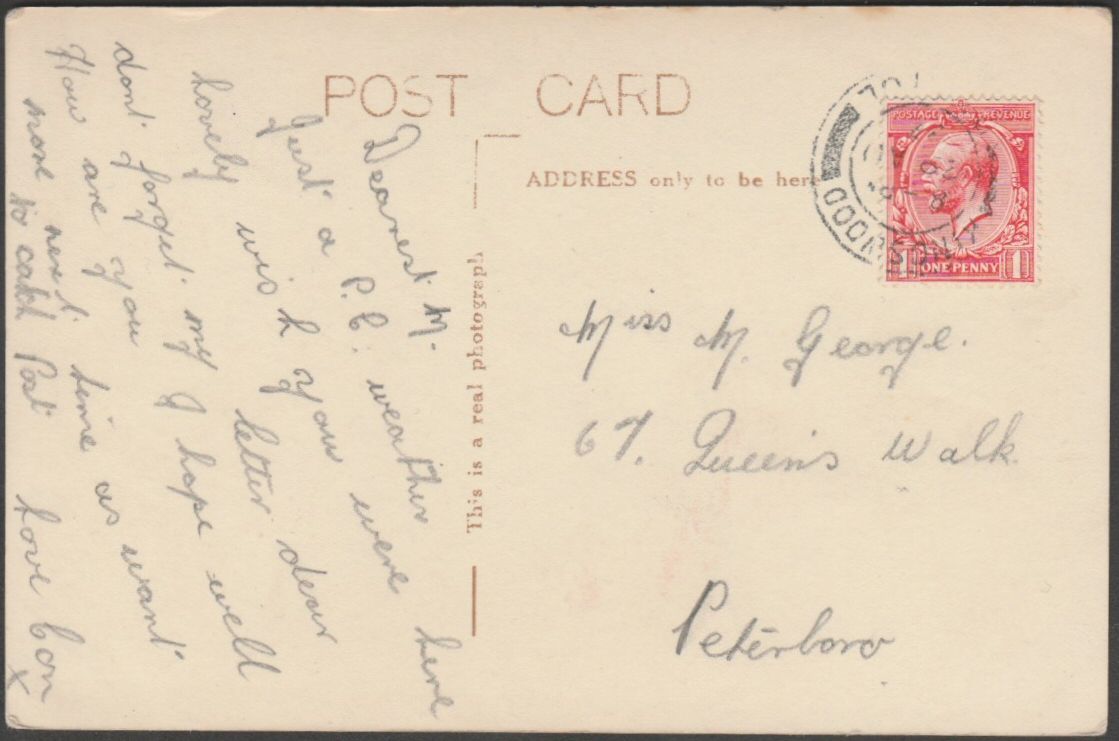 POST CARD
ADDRESS only to be here
This is a real photograph
POSTAGE REVENUE
ONE PENNY
1 1
Dearest M.
Just a P.C. weather here
lovely wish you were
dont forget my letter dear
How are you I hope well
more next time as want
to catch Post love Con
x
Miss M. George.
67. Queen's Walk
Peterboro